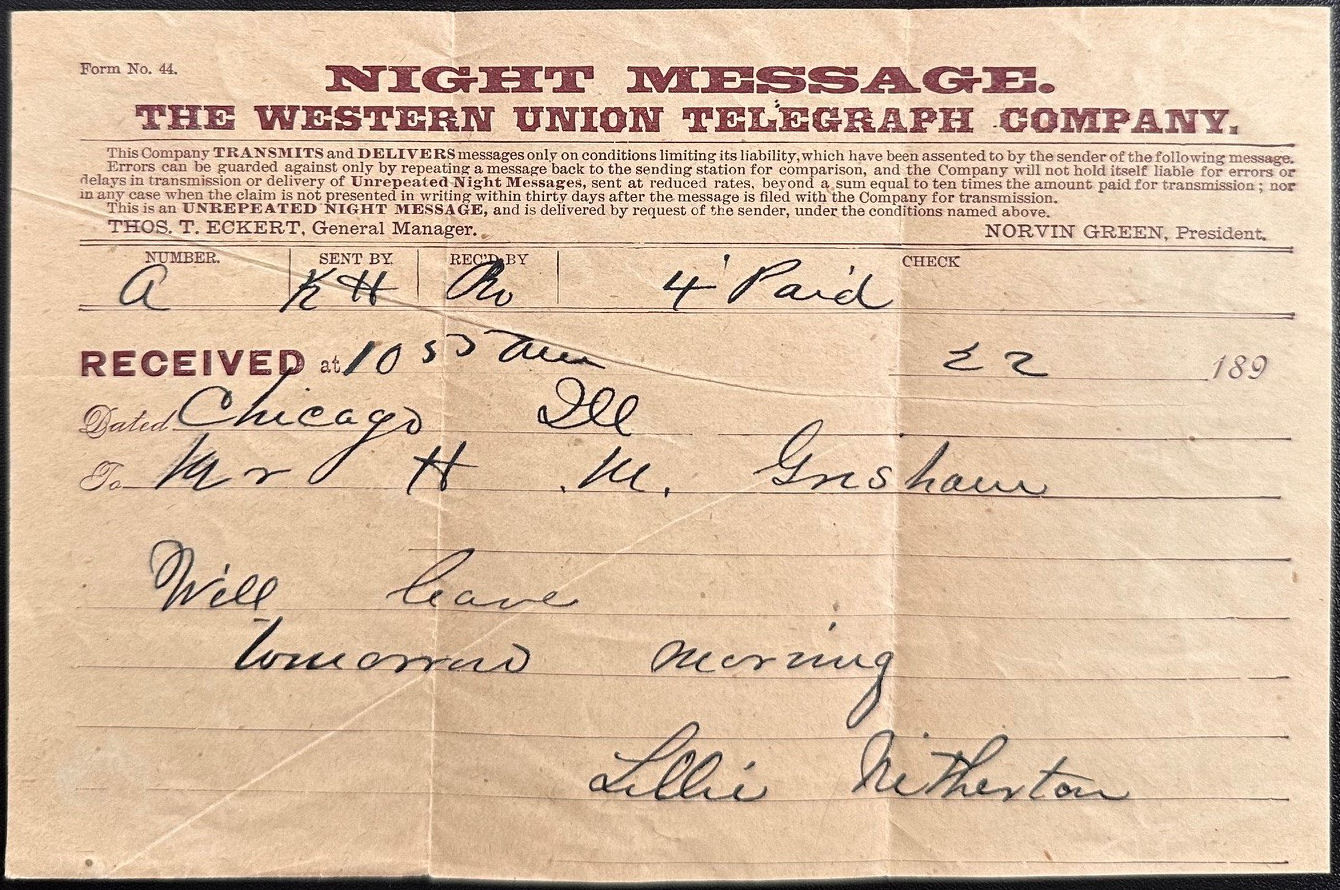 Form No. 44.
NIGHT MESSAGE.
THE WESTERN UNION TELEGRAPH COMPANY.
This Company TRANSMITS and DELIVERS messages only on conditions limiting its liability, which have been assented to by the sender of the following message.
Errors can be guarded against only by repeating a message back to the sending station for comparison, and the Company will not hold itself liable for errors or
delays in transmission or delivery of Unrepeated Night Messages, sent at reduced rates, beyond a sum equal to ten times the amount paid for transmission; nor
in any case when the claim is not presented in writing within thirty days after the message is filed with the Company for transmission.
This is an UNREPEATED NIGHT MESSAGE, and is delivered by request of the sender, under the conditions named above.
THOS. T. ECKERT, General Manager. NORVIN GREEN, President.
NUMBER. SENT BY. REC'D BY CHECK
a KH 4 Paid
RECEIVED at 10 55 am 22 189
Dated Chicago Ill
To Mr H. M. Grisham
Will leave
tomorrow morning
Lillie